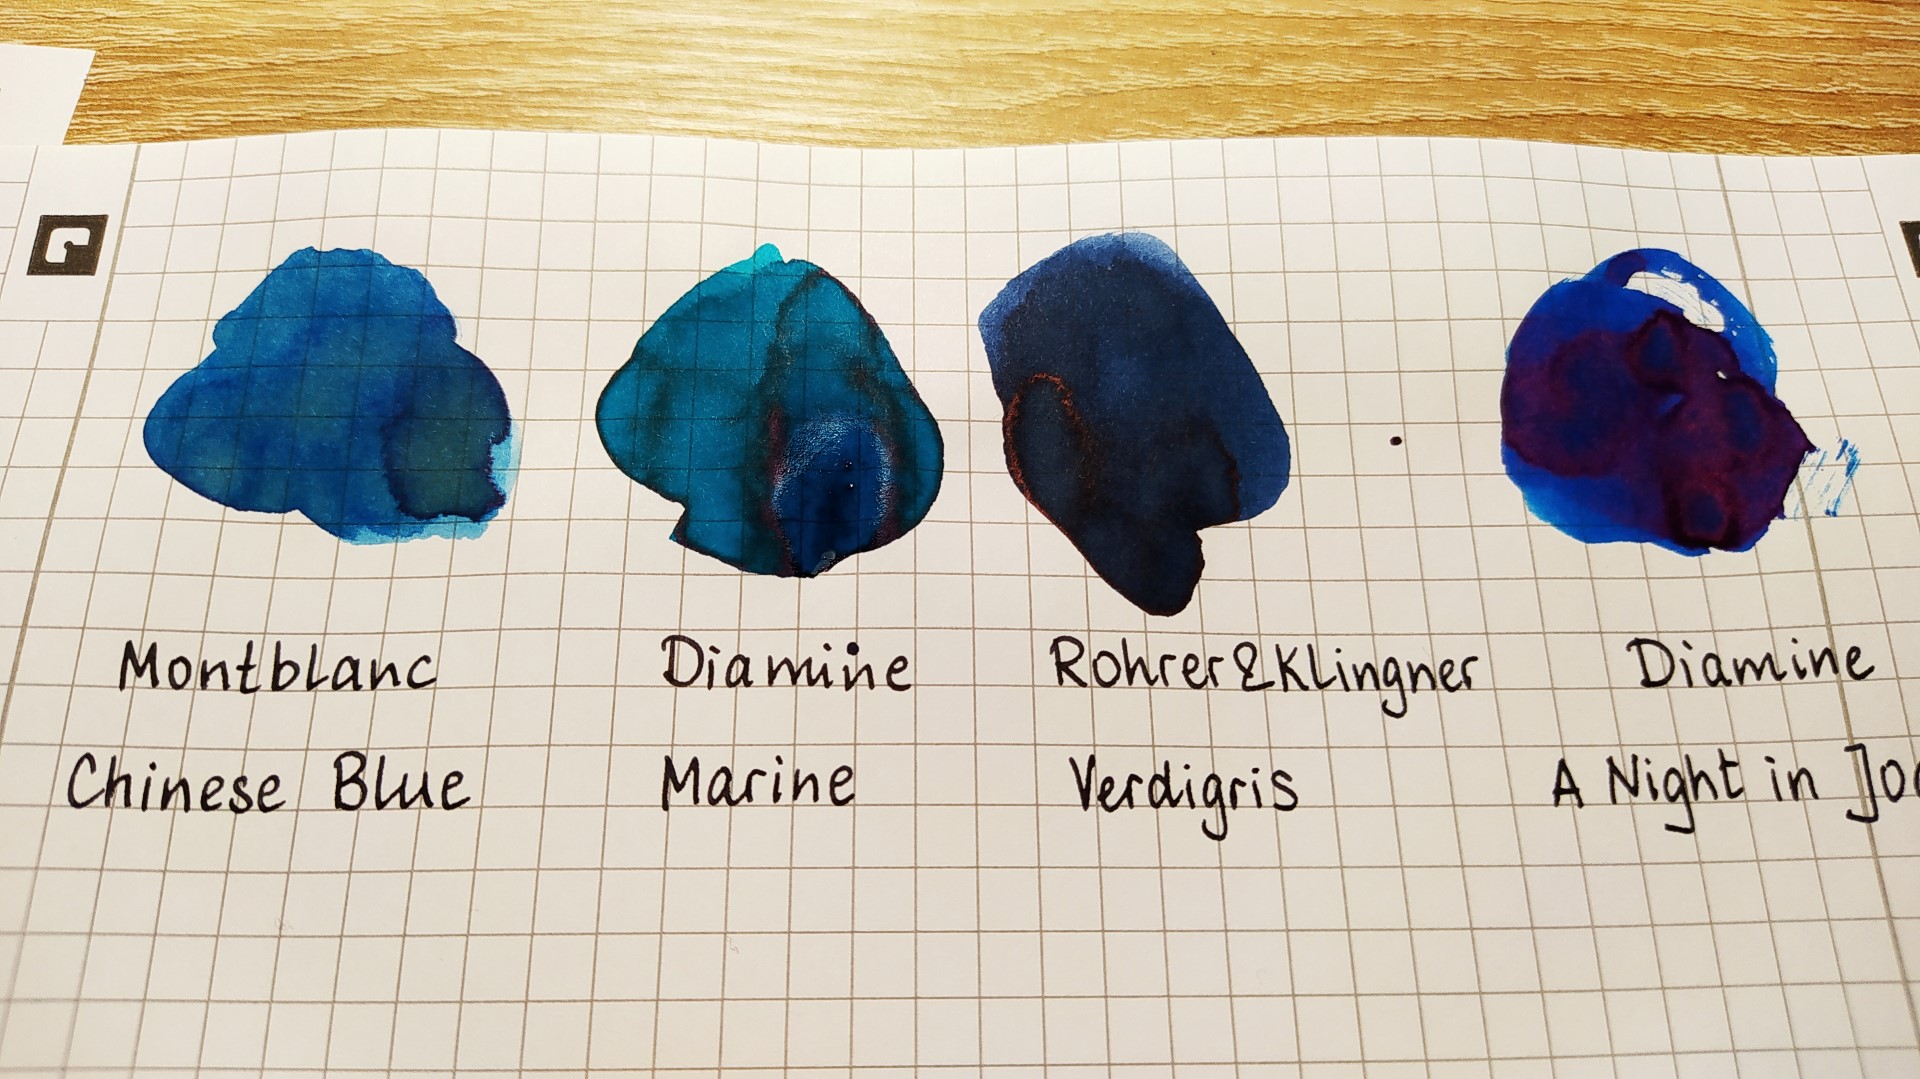 Montblanc
Chinese Blue
Diamine
Marine
Rohrer&Klingner
Verdigris
Diamine
A Night in Jo